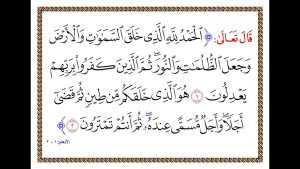 قَالَ تَعَالَى: ﴿ٱلْحَمْدُ لِلَّهِ ٱلَّذِى خَلَقَ ٱلسَّمَٰوَٰتِ وَٱلْأَرْضَ
وَجَعَلَ ٱلظُّلُمَٰتِ وَٱلنُّورَ ثُمَّ ٱلَّذِينَ كَفَرُوا۟ بِرَبِّهِمْ
يَعْدِلُونَ ۝١ هُوَ ٱلَّذِى خَلَقَكُم مِّن طِينٍ ثُمَّ قَضَىٰٓ
أَجَلًا ۖ وَأَجَلٌ مُّسَمًّى عِندَهُۥ ۖ ثُمَّ أَنتُمْ تَمْتَرُونَ ۝٢﴾
الأنعام: ١ - ٢